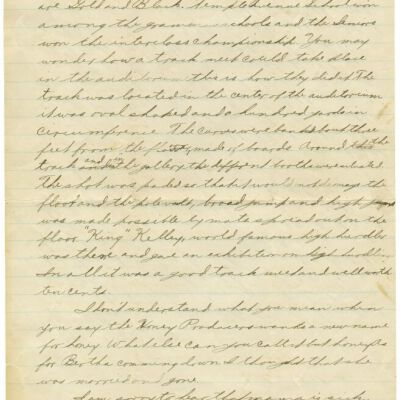 are Gold and Black. Temple
among the grammar schools and the Seniors
won the interclass championship. You may
wonder how a track meet could take place
in the auditorium this is how they did it. The
track was located in the center of the auditorium
it was oval shaped and a hundred yards in
circumference. The curves were banked about three
feet from the floor, made of boards. Around the
track and in the gallery the different booths were
The shot was padded so that it would not damage the
floor and the pole vaults, broad jump and high jump
was made possible by mats spread out on the
floor. "King" Kelley, world famous high hurdler
was there and gave an exhibition on high hurdling.
In all it was a good track meet and well worth
ten cents.
I don't understand what you mean when
you say the Honey Producers wants a new name
for honey. What else can you call it but honey. As
for Bertha comming down I thought that she
was married and gone.
I am sorry to hear that mama is sick